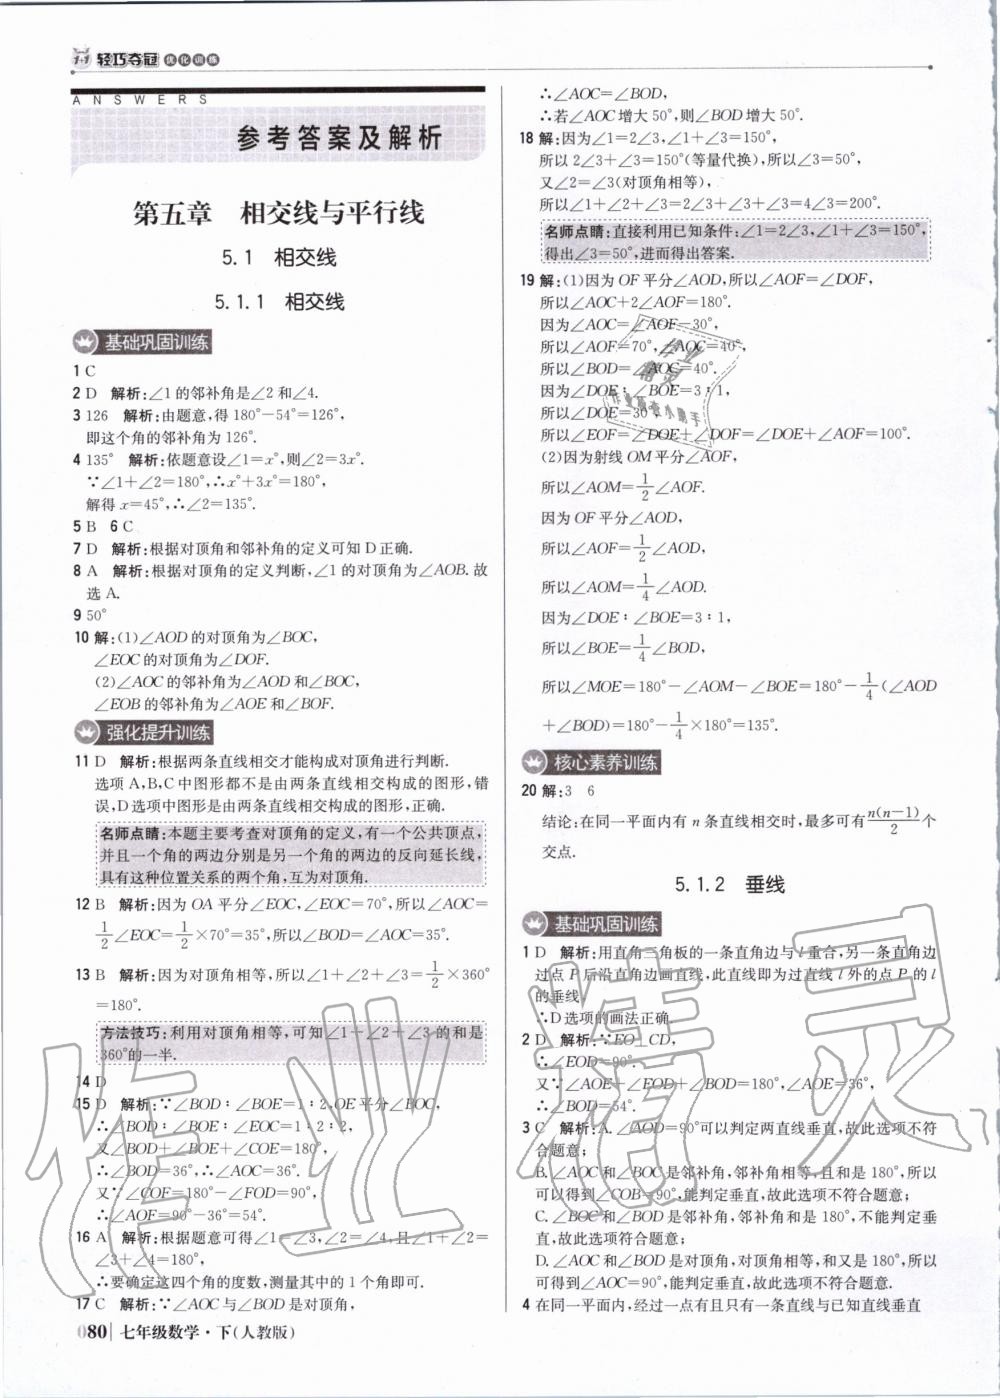 轻巧夺冠 优化训练
ANSWERS
参考答案及解析
第五章 相交线与平行线
5.1 相交线
5.1.1 相交线
基础巩固训练
1 C
2 D 解析:∠1的邻补角是∠2和∠4.
3 126 解析:由题意,得180°-54°=126°,
即这个角的邻补角为126°.
4 135° 解析:依题意设∠1=x°,则∠2=3x°.
∵∠1+∠2=180°,∴x°+3x°=180°,
解得x=45°,∴∠2=135°.
5 B 6 C
7 D 解析:根据对顶角和邻补角的定义可知D正确.
8 A 解析:根据对顶角的定义判断,∠1的对顶角为∠AOB.故
选A.
9 50°
10 解:(1)∠AOD的对顶角为∠BOC,
∠EOC的对顶角为∠DOF.
(2)∠AOC的邻补角为∠AOD和∠BOC,
∠EOB的邻补角为∠AOE和∠BOF.
强化提升训练
11 D 解析:根据两条直线相交才能构成对顶角进行判断.
选项A,B,C中图形都不是由两条直线相交构成的图形,错
误,D选项中图形是由两条直线相交构成的图形,正确.
名师点睛:本题主要考查对顶角的定义,有一个公共顶点,
并且一个角的两边分别是另一个角的两边的反向延长线,
具有这种位置关系的两个角,互为对顶角.
12 B 解析:因为OA平分∠EOC,∠EOC=70°,所以∠AOC=
1/2∠EOC=1/2×70°=35°,所以∠BOD=∠AOC=35°.
13 B 解析:因为对顶角相等,所以∠1+∠2+∠3=1/2×360°
=180°.
方法技巧:利用对顶角相等,可知∠1+∠2+∠3的和是
360°的一半.
14 D
15 D 解析:∵∠BOD∶∠BOE=1∶2,OE平分∠BOC,
∴∠BOD∶∠BOE∶∠EOC=1∶2∶2,
又∠BOD+∠BOE+∠COE=180°,
∴∠BOD=36°,∴∠AOC=36°.
又∵∠COF=180°-∠FOD=90°,
∴∠AOF=90°-36°=54°.
16 A 解析:根据题意可得∠1=∠3,∠2=∠4,且∠1+∠2=
∠3+∠4=180°,
∴要确定这四个角的度数,测量其中的1个角即可.
17 C 解析:∵∠AOC与∠BOD是对顶角,
080 七年级数学·下(人教版)
∴∠AOC=∠BOD,
∴若∠AOC增大50°,则∠BOD增大50°.
18 解:因为∠1=2∠3,∠1+∠3=150°,
所以2∠3+∠3=150°(等量代换),所以∠3=50°,
又∠2=∠3(对顶角相等),
所以∠1+∠2=2∠3+∠3+∠3=4∠3=200°.
名师点睛:直接利用已知条件:∠1=2∠3,∠1+∠3=150°,
得出∠3=50°,进而得出答案.
19 解:(1)因为OF平分∠AOD,所以∠AOF=∠DOF,
所以∠AOC+2∠AOF=180°.
因为∠AOC=∠AOF-30°,
所以∠AOF=70°,∠AOC=40°,
所以∠BOD=∠AOC=40°.
因为∠DOE∶∠BOE=3∶1,
所以∠DOE=30°,
所以∠EOF=∠DOE+∠DOF=∠DOE+∠AOF=100°.
(2)因为射线OM平分∠AOF,
所以∠AOM=1/2∠AOF.
因为OF平分∠AOD,
所以∠AOF=1/2∠AOD,
所以∠AOM=1/4∠AOD.
因为∠DOE∶∠BOE=3∶1,
所以∠BOE=1/4∠BOD,
所以∠MOE=180°-∠AOM-∠BOE=180°-1/4(∠AOD
+∠BOD)=180°-1/4×180°=135°.
核心素养训练
20 解:3 6
结论:在同一平面内有n条直线相交时,最多可有n(n-1)/2个
交点.
5.1.2 垂线
基础巩固训练
1 D 解析:用直角三角板的一条直角边与l重合,另一条直角边
过点P后沿直角边画直线,此直线即为过直线l外的点P的l
的垂线.
∴D选项的画法正确.
2 D 解析:∵EO⊥CD,
∴∠EOD=90°.
又∵∠AOE+∠EOD+∠BOD=180°,∠AOE=36°,
∴∠BOD=54°.
3 C 解析:A.∠AOD=90°可以判定两直线垂直,故此选项不符
合题意;
B.∠AOC和∠BOC是邻补角,邻补角相等,且和是180°,所以
可以得到∠COB=90°,能判定垂直,故此选项不符合题意;
C.∠BOC和∠BOD是邻补角,邻补角和是180°,不能判定垂
直,故此选项符合题意;
D.∠AOC和∠BOD是对顶角,对顶角相等,和又是180°,所以
可得到∠AOC=90°,能判定垂直,故此选项不符合题意.
4 在同一平面内,经过一点有且只有一条直线与已知直线垂直
作业精灵
作业检查小助手